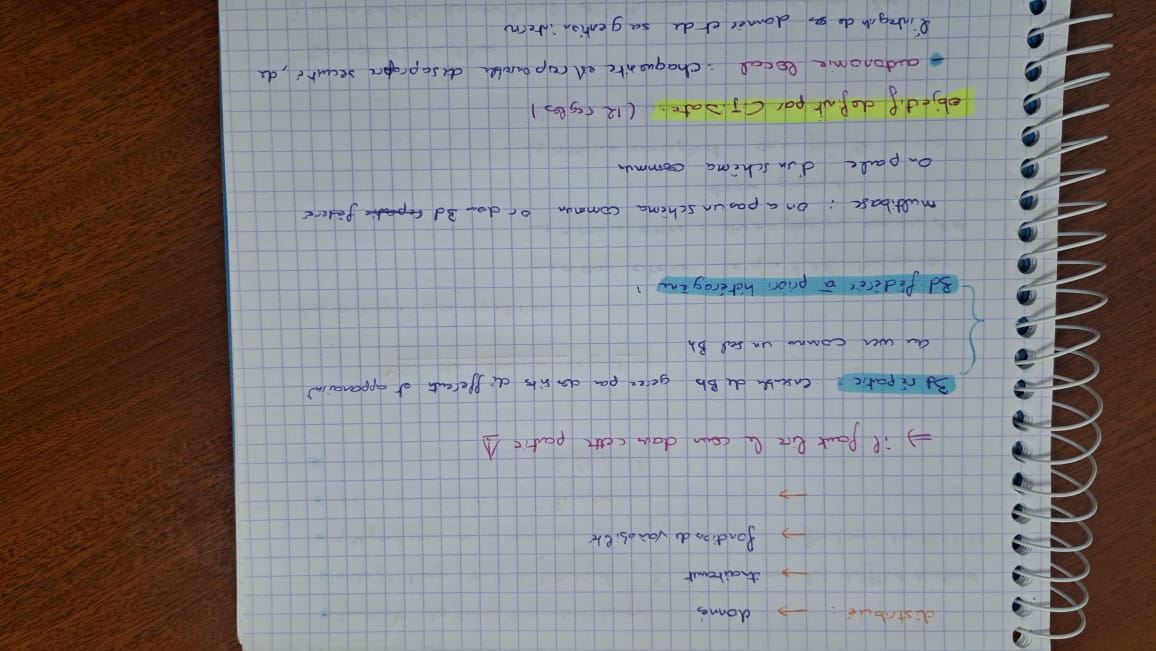 distribué : → donnés
→ traitement
→ fonction de variabilité
→
⇒ il faut lire le cour dans cette partie ⚠
Bd répartie : ensemble de Bd gerée par des sites differents et apparaissent
au user comme un seul Bd
Bd fédérée à priori hétérogène :
multibase : on a pas un schéma commun or dans Bd repartie féderé
on parle d'un schéma commun
objectif definit par CJ.Date. (12 regles)
- autonomie local : chaque site est responsable de sa propre securité, de
l'integrité de ses donnée et de sa gestion intern